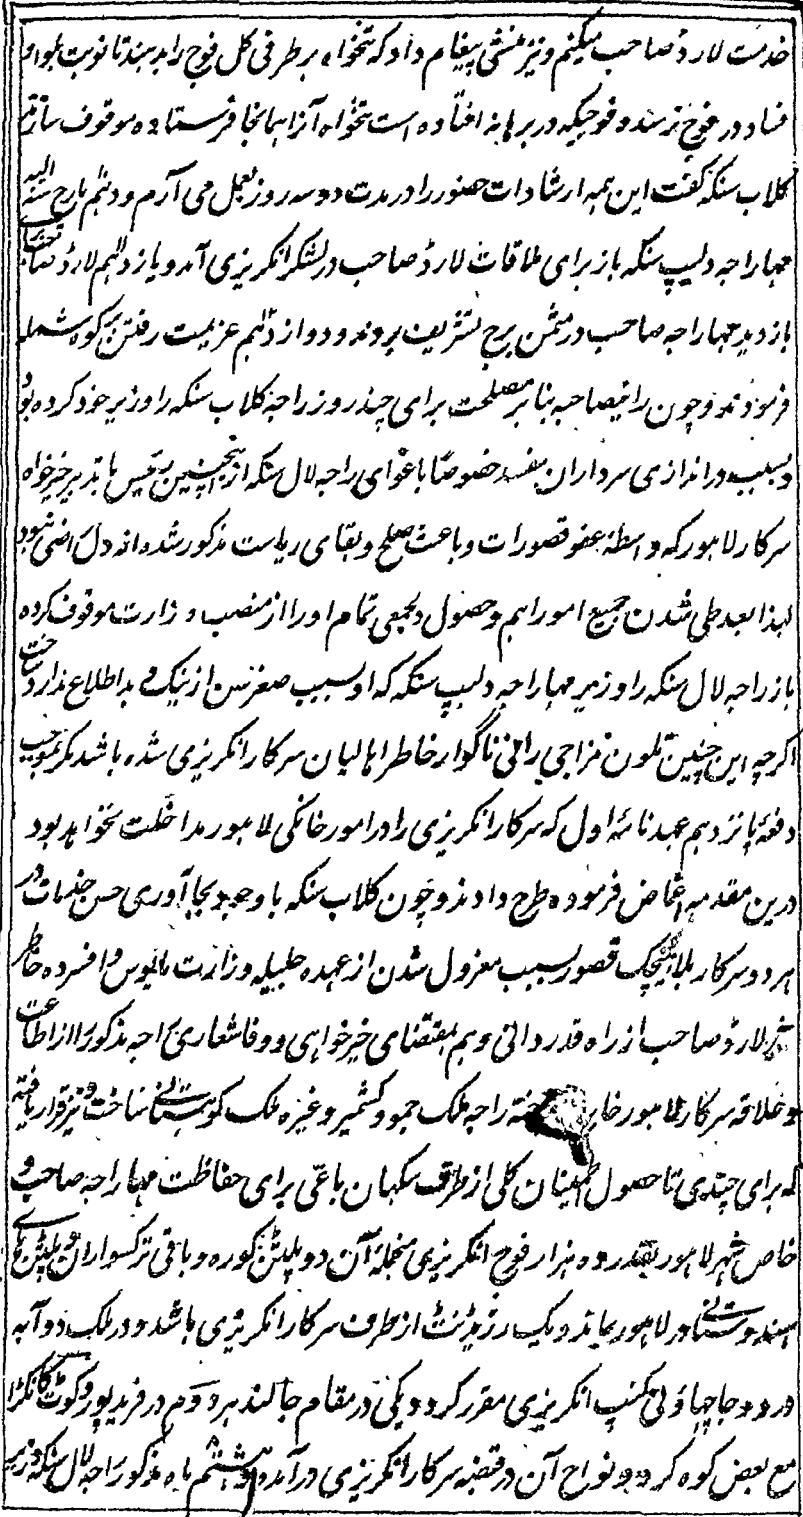 خدمت لارد صاحب میکنم و نیز منشی پیغام داد که تنخواه برطرفی کل فوج را بدهند تا نوبت بلوا و
فساد در فوج نرسد و فوجیکه در برهانه افتاده است تنخواه آنرا همانجا فرستاده موقوف سازند
کلاب سنکه کفت این همه ارشادات حضور را در مدت دو سه روز بعمل می آرم و دهم مارچ سنه الیه
مهاراجه دلیپ سنکه باز برای ملاقات لارد صاحب در لشکر انکریزی آمد و یازدهم لارد صاحب
بازدید مهاراجه صاحب در مثمن برج تشریف بردند و دوازدهم عزیمت رفتن بر کوه شمله
فرمودند و چون رانیصاحبه بنابر مصلحت برای چند روز راجه کلاب سنکه را وزیر خود کرده بود
و بسبب در اندازی سرداران مفسد خصوصا باغوای راجه لال سنکه ازینچنین رئیس با تدبیر خیرخواه
سرکار لاهور که واسطه عفو قصورات و باعث صلح و بقای ریاست مذکور شده اند دل راضی نبود
لهذا بعد طی شدن جمیع امور اهم و حصول دلجمعی تمام او را از منصب وزارت موقوف کرده
باز راجه لال سنکه را وزیر مهاراجه دلیپ سنکه که او بسبب صغر سن از نیک و بد اطلاع ندارد ساخت
اکرچه این چنین تلون مزاجی رانی ناگوار خاطر اهالیان سرکار انکریزی شده باشد مکر بموجب
دفعه پانزدهم عهدنامه اول که سرکار انکریزی را در امور خانکی لاهور مداخلت نخواهد بود
درین مقدمه اغماض فرموده طرح دادند و چون کلاب سنکه با وجود بجا آوری حسن خدمات در
هر دو سرکار بلا هیچک قصور بسبب معزول شدن از عهده جلیله وزارت مایوس و افسرده خاطر
لارد صاحب از راه قدردانی و هم بمقتضای خیرخواهی و وفاشعاری راجه مذکور را از اطاعت
و علاقه سرکار لاهور راجه ملک جمو و کشمیر و غیره ملک کوهستانی ساخت و نیز قرار یافته
که برای چندی تا حصول اطمینان کلی از طرف سکهان باغی برای حفاظت مهاراجه صاحب و
خاص شهر لاهور بقدر ده هزار فوج انکریزی منجمله آن دو پلیٹن کوره و باقی ترکسواران و پلیٹن های
هندوستانی در لاهور بماند و یک رزیڈنٹ از طرف سرکار انکریزی باشد و در ملک دوآبه
در دو جا چهاؤنی کنپ انکریزی مقرر کردد یکی در مقام جالندهر دوم در فریدپور و کوٹ کانکڑا
مع بعض کوه کرد و نواح آن در قبضه سرکار انکریزی درآمد و هشتم ماه مذکور راجه لال سنکه وزیر